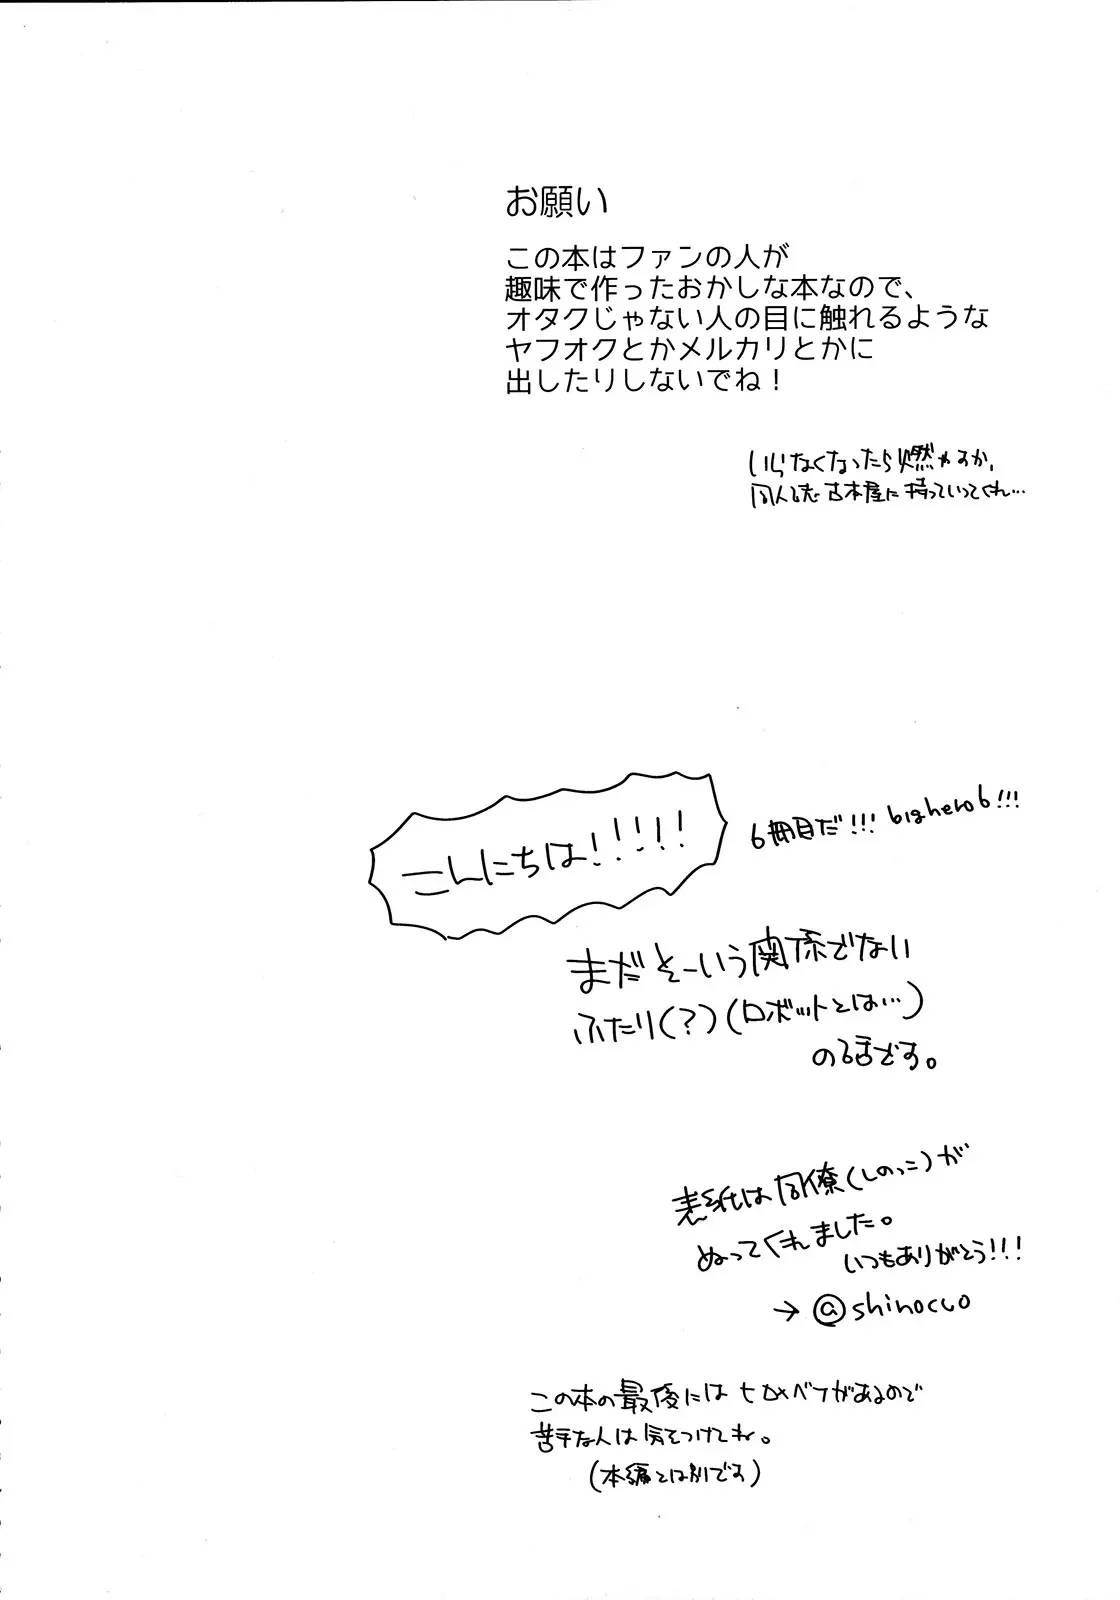 お願い
この本はファンの人が
趣味で作ったおかしな本なので、
オタクじゃない人の目に触れるような
ヤフオクとかメルカリとかに
出したりしないでね！
いらなくなったら燃やすか、
同人誌古本屋に持っていってくれ…
こんにちは!!!!!
6冊目だ!!! bighero6!!!
まだそーいう関係でない
ふたり(?)(ロボットとは…)
の話です。
表紙は同僚(しのっこ)が
ぬってくれました。
いつもありがとう!!!
→ @shinocco
この本の最後にはヒロ×ベフがあるので
苦手な人は気をつけてね。
(本編とは別です)